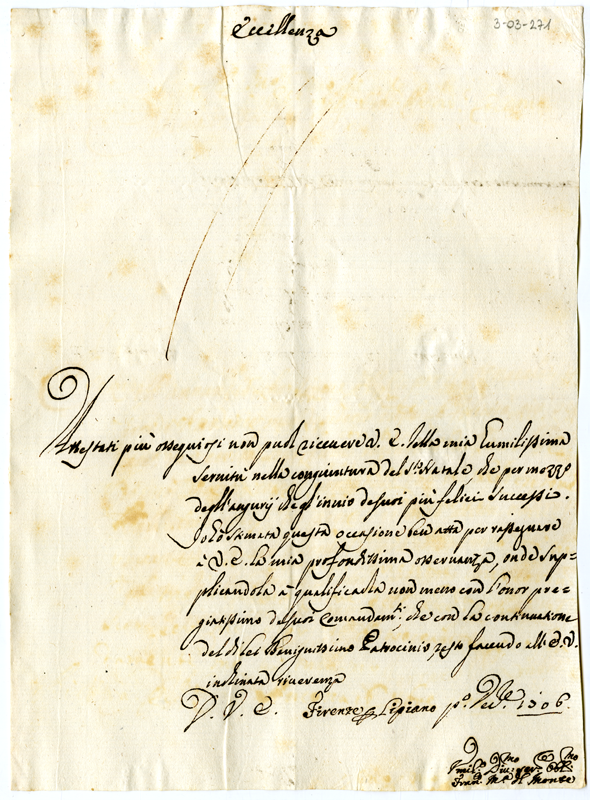 Eccellenza
3-03-271
Attestati più ossequiosi non può ricevere V. E. della mia humilissima
servitù nella congiuntura del S. Natale che per mezzo
degl'augurij che gl'invio de suoi più felici successi.
Hò stimata questa occasione ben atta per rassegnare
à V. E. la mia profondissima osservanza, onde sup=
plicandola à qualificarla non meno con l'onor pre=
giatissimo de suoi Comandam.ti, che con la continuazione
del di lei Benignissimo Patrocinio, resto facendo all' E. V.
inclinata riverenza
D. V. E. Firenze Lipiano p.o
Umil.mo Div. Ser. Obl.mo
Fran. M.a del Monte